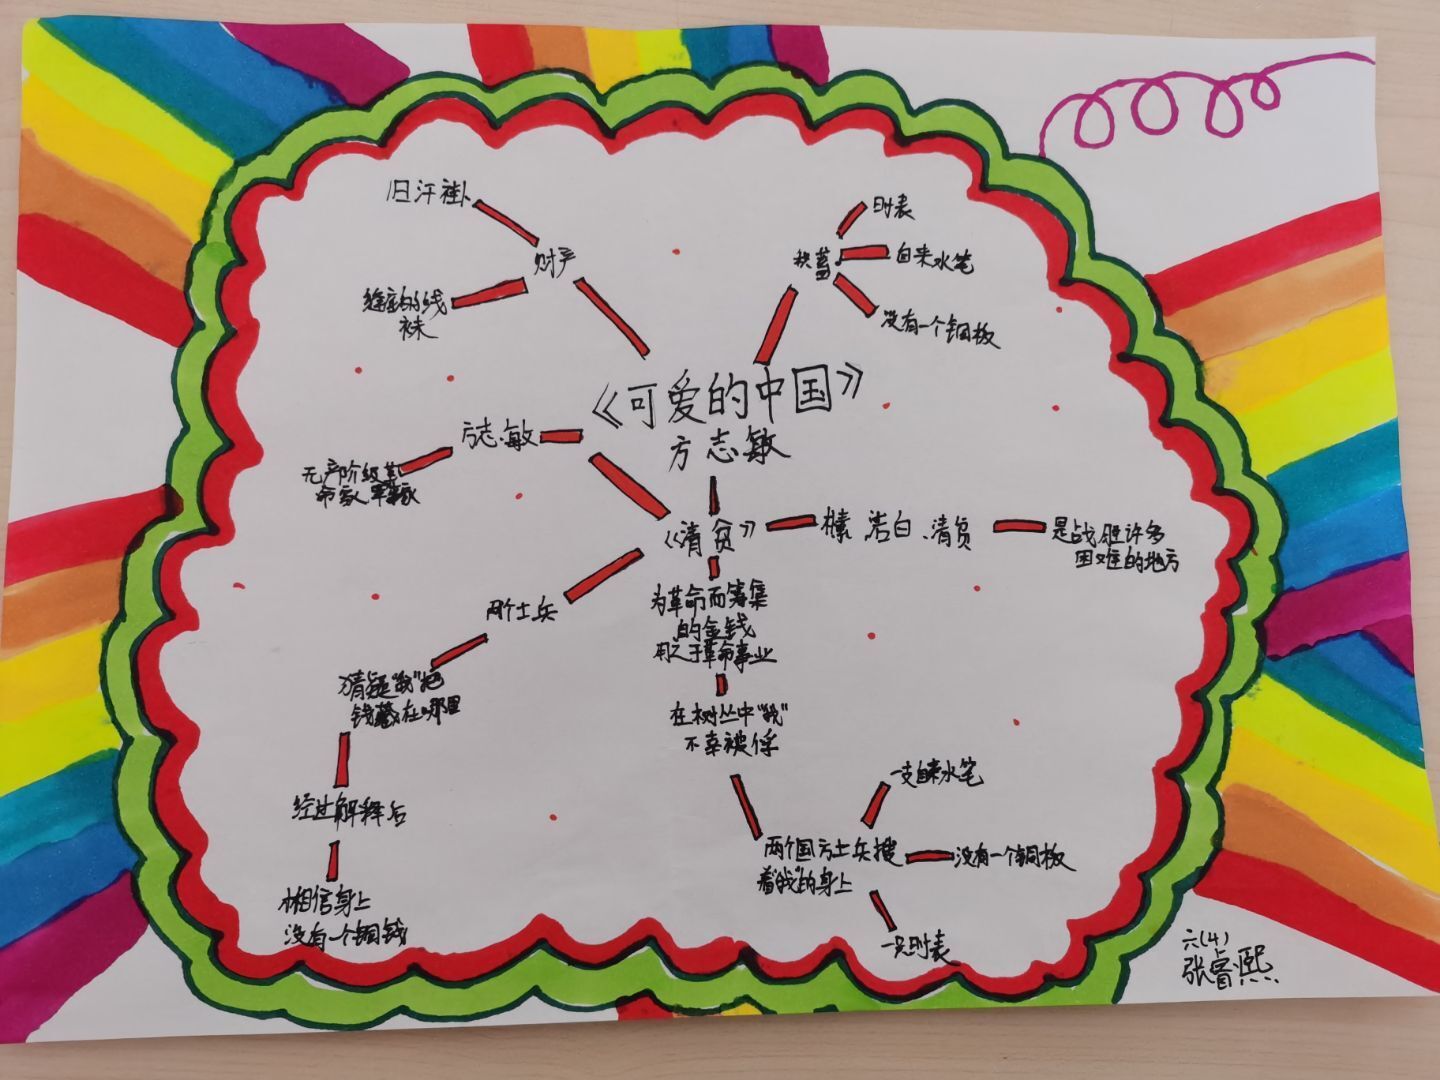 旧汗褂
财产
线
袜
积蓄
时表
自来水笔
没有一个铜板
《可爱的中国》
方志敏
方志敏
无产阶级革
命家
《清贫》
朴素、洁白、清贫
是战胜许多
困难的地方
两个士兵
猜疑"我"把
钱藏在哪里
经过解释后
相信身上
没有一个铜钱
为革命而筹集
的金钱
用之于革命事业
在树丛中"我"
不幸被俘
两个国方士兵搜
着"我"的身上
一支自来水笔
没有一个铜板
一只时表
六(4)
张睿熙